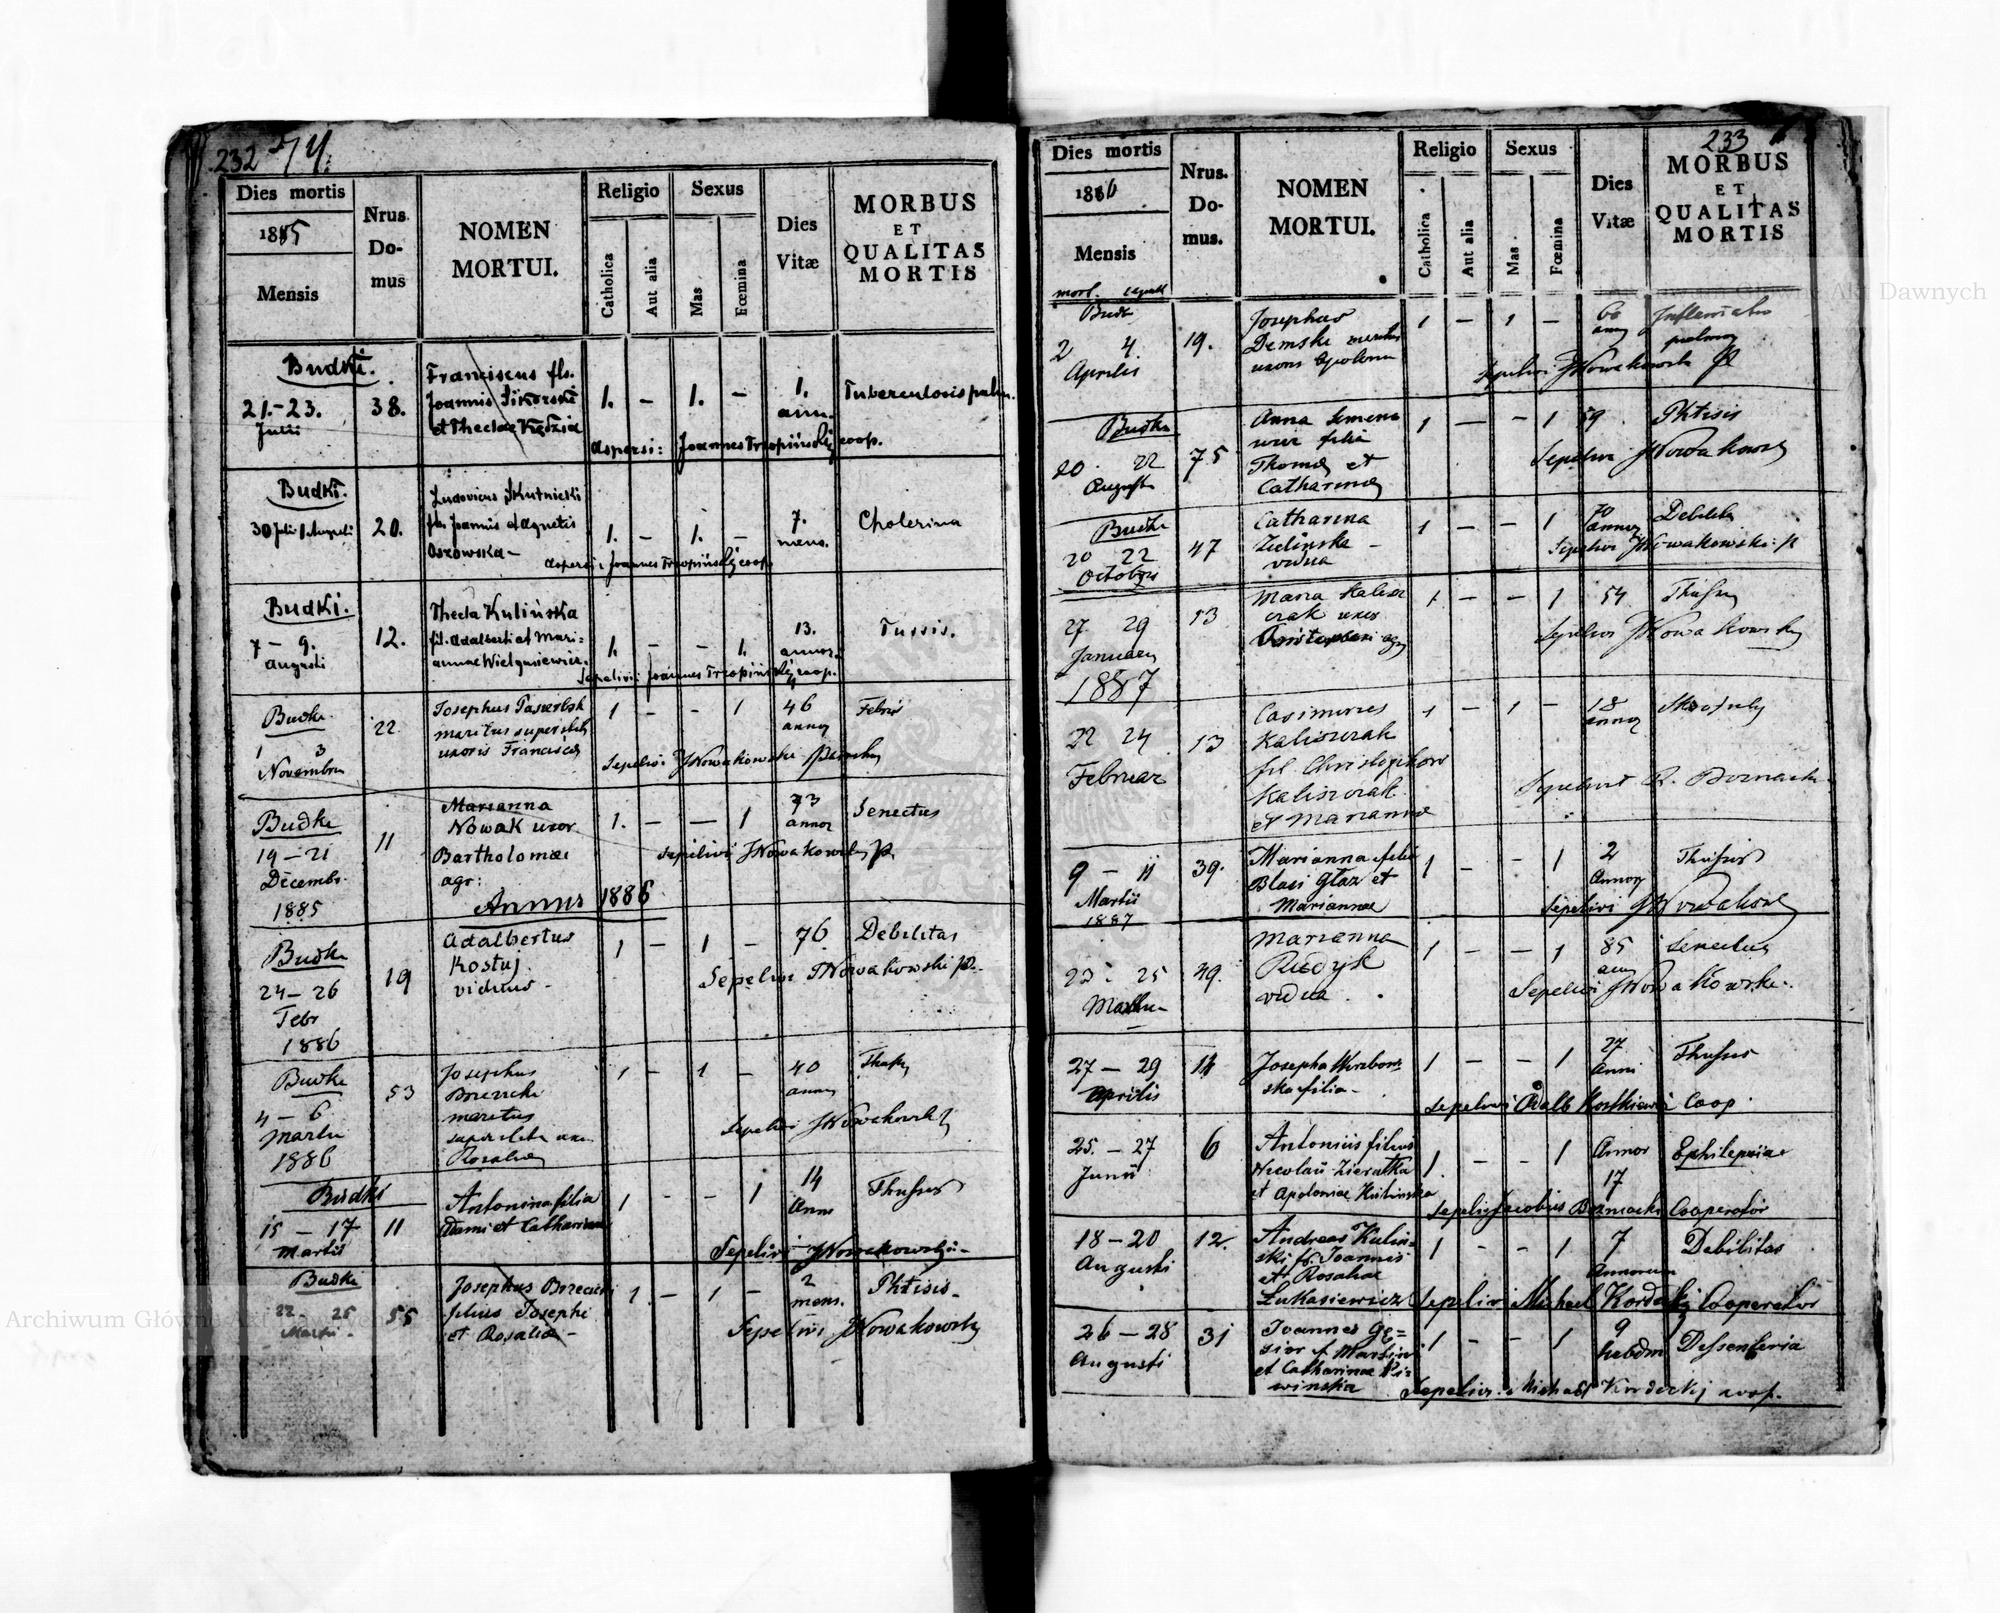 232 74.
Dies mortis
1885
Mensis
Nrus
Do-
mus
NOMEN
MORTUI.
Religio
Catholica
Aut alia
Sexus
Mas
Fœmina
Dies
Vitæ
MORBUS
ET
QUALITAS
MORTIS
Budki.
21.-23.
Julii
38.
Franciscus fls.
Joannis Sikorski
et Theclae Kędzia
1. - 1. -
1.
ann.
Tuberculosis pulm.
Aspersi: Joannes Trzopiński coop.
Budki.
30 Julii 1 Augusti
20.
Ludovicus Skutnicki
fls. Joannis et Agnetis
Oszowska -
1. - 1. -
7.
mens.
Cholerina
Aspersi: Joannes Trzopiński coop.
Budki.
7 - 9.
Augusti
12.
Thecla Kulińska
fil. Adalberti et Mari=
annae Wielgusiewicz.
1. - - 1.
13.
annor.
Tussis.
Sepelivi: Joannes Trzopiński coop.
Budki
1 3
Novembris
22
Josephus Pasierbek
maritus superstes
uxoris Francisca
1 - - 1
46
annor
Febris
Sepelivi JNowakowski
Budki
19 - 21
Decembr.
1885
11
Marianna
Nowak uxor
Bartholomæi
agr:
1. - - 1
73
annor
Senectus
Sepelivi JNowakowski
Annus 1886
Budki
24 - 26
Febr
1886
19
Adalbertus
Kostuj
viduus -
1 - 1 -
76
Debilitas
Sepelivi JNowakowski
Budki
4 - 6
Martii
1886
53
Josephus
Brzezicki
maritus
Rosaliæ
1 - 1 -
40
annor
Sepelivi JNowakowski
Budki
15 - 17
Martii
11
Antonina filia
Adami et Catharinae
1 - - 1
14
Ann
Thussis
Sepelivi JNowakowski -
Budki
22 - 25
Martii -
55
Josephus
filius Josephi
et Rosaliæ -
1 - 1 -
2
mens.
Phtisis -
Sepelivi JNowakowski
233
Dies mortis
1886
Mensis
mort. sepult
Nrus.
Do-
mus.
NOMEN
MORTUI.
Religio
Catholica
Aut alia
Sexus
Mas
Fœmina
Dies
Vitæ
MORBUS
ET
QUALITAS
MORTIS
Budki
2 4
Aprilis
19.
Josephus
Demski maritus
uxoris Apolonia
1 - 1 -
60
ann
Sepelivi JNowakowski
Budki
20 22
Augusti
75
Anna
filia
Thomæ et
Catharinæ
1 - - 1
59
Phtisis
Sepelivi JNowakowski
Budki
20 22
Octobris
47
Catharina
Zielinska -
vidua
1 - - 1
70
annor
Debilitas
Sepelivi JNowakowski
27 29
January
1887
13
Maria Kalisz
czak uxor
1 - - 1
54
Sepelivi JNowakowski
22 24
Februar
13
Casimirus
Kaliszczak
fil. Christophori
Kaliszczak
et Marianna
1 - 1 -
18
annor
Sepelivit R. Boznacki
9 - 11
Martii
1887
39.
Marianna filia
Blasi Głaz et
Mariannae
1 - - 1
2
Annor
Thussis
Sepelivi JNowakowski
23. 25
Martii
49.
Marianna
Rudyk
vidua.
1 - - 1
85
ann
Senectus
Sepelivi JNowakowski.
27 - 29
Aprilis
14
Josepha Wierzbow-
ska filia -
1 - - 1
27
Anni
Thussis
Sepelivi Adalb Kostkiewicz Coop.
25. - 27
Junii
6
Antonius filius
Nicolaii Zieratka
et Apoloniae Kulinska
1 - - 1
Annor
17
Ephilepsiae
Sepelivi Jacobus Boznacki Cooperator
18 - 20
Augusti
12.
Andreas Kulin-
ski fs. Joannis
et Rosaliae
Łukasiewicz
1 - - 1
7
Annorum
Debilitas
Sepelivi Michael Kordecki Cooperator
26 - 28
Augusti
31
Joannes Gę=
sior f. Martini
et Catharinae Pi-
winska
1 - - 1
9
hebdm
Dessenteria
Sepelivi Michael Kordeckij coop.
Archiwum Główne Akt Dawnych
Archiwum Główne Akt Dawnych